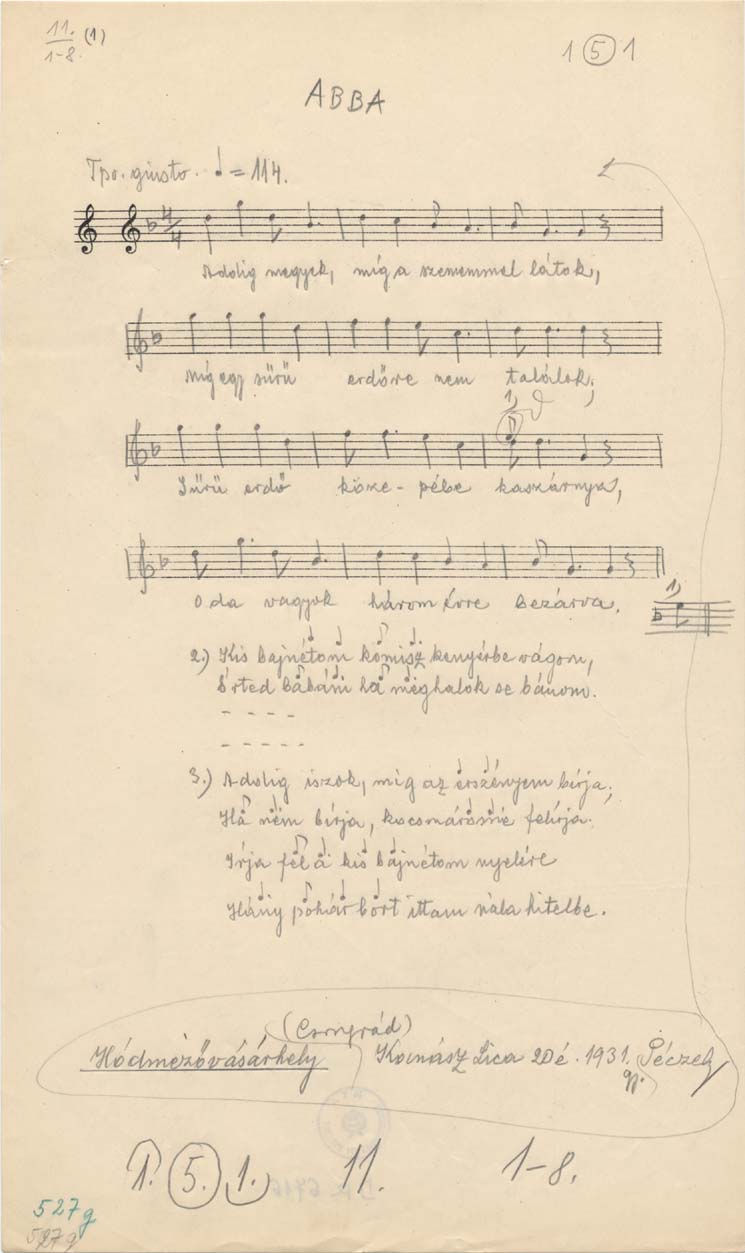 11. (1)
1-8.
1 5 1
ABBA
Tpo. giusto. ♩ = 114.
4/4
Adolig megyek, míg a szememmel látok,
Míg egy sűrű erdőre nem találok;
1)
Sűrű erdő köze - pébe kaszárnya,
Oda vagyok három évre bezárva.
1)
2.) Kis bajnétom komisz kenyérbe vágom,
Érted babám ha meghalok se bánom.
- - - -
- - - - -
3.) Adolig iszok, míg az erszényem bírja;
Ha nem bírja, kocsmárosné felírja.
Írja fel a kis bajnétom nyelére
Hány pohár bort ittam nála hitelbe.
(Csongrád)
Hódmezővásárhely
Lica 20 é. 1931. Péczely
gy.
1. 5. 1. 11. 1-8.
527g
527g